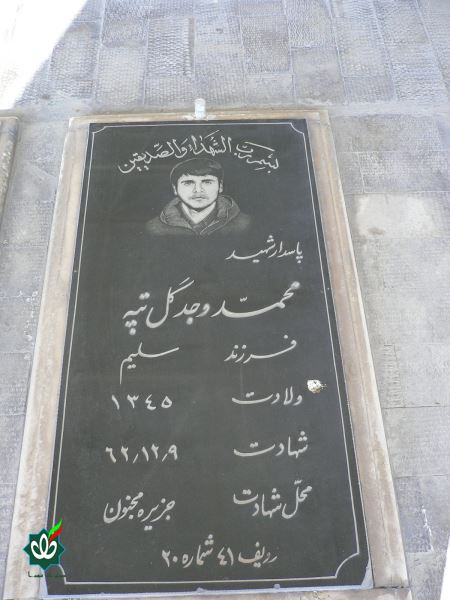 بسم رب الشهداء والصدیقین
پاسدار شهید
محمد وجد گل تپه
فرزند سلیم
ولادت ۱۳۴۵
شهادت ۶۲/۱۲/۹
محل شهادت جزیره مجنون
ردیف ۴۱ شماره ۲۰